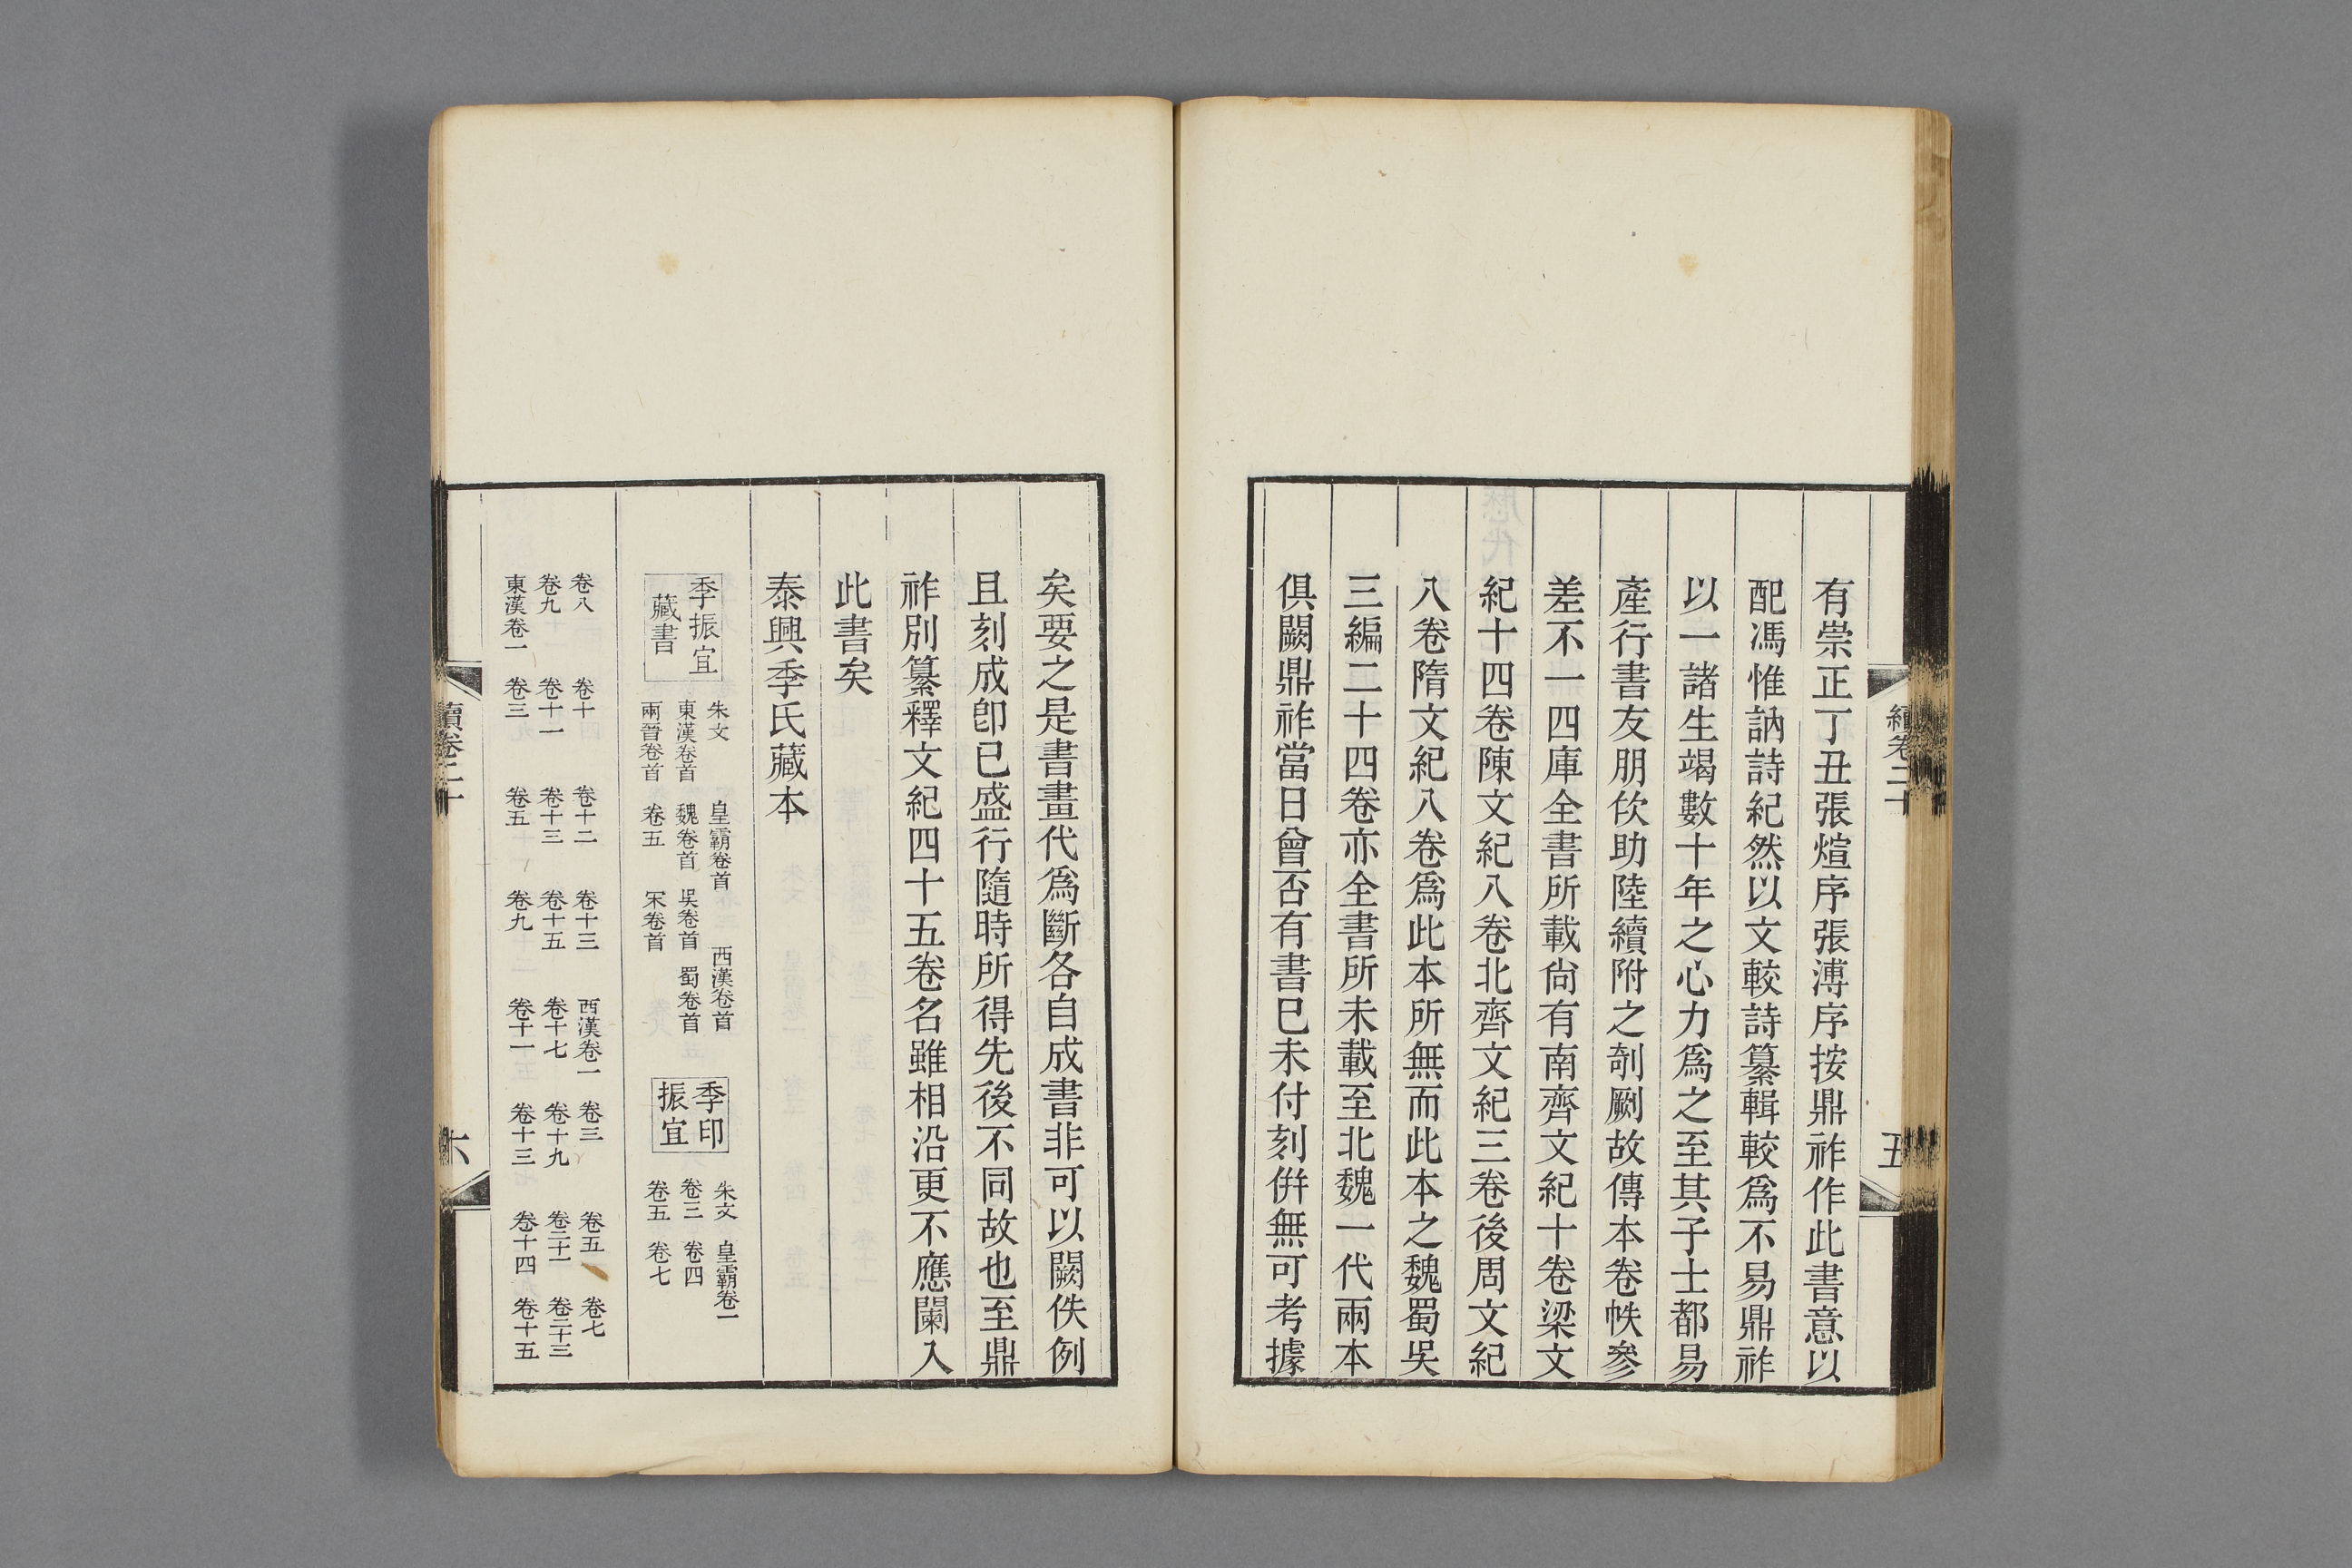 續卷二十
五
有崇正丁丑張煊序張溥序按鼎祚作此書意以
配馮惟訥詩紀然以文較詩纂輯較爲不易鼎祚
以一諸生竭數十年之心力爲之至其子士都易
產行書友朋佽助陸續附之剞劂故傳本卷帙參
差不一四庫全書所載尙有南齊文紀十卷梁文
紀十四卷陳文紀八卷北齊文紀三卷後周文紀
八卷隋文紀八卷爲此本所無而此本之魏蜀吳
三編二十四卷亦全書所未載至北魏一代兩本
俱闕鼎祚當日曾否有書已未付刻倂無可考據
矣要之是書畫代爲斷各自成書非可以闕佚例
且刻成卽已盛行隨時所得先後不同故也至鼎
祚別纂釋文紀四十五卷名雖相沿更不應闌入
此書矣
泰興季氏藏本
季振宜
藏書
朱文 皇霸卷首 西漢卷首
東漢卷首 魏卷首 吳卷首 蜀卷首
兩晉卷首 卷五 宋卷首
季印
振宜
朱文 皇霸卷一
卷三 卷四
卷五 卷七
卷八 卷十 卷十二 卷十三 西漢卷一 卷三 卷五 卷七
卷九 卷十一 卷十三 卷十五 卷十七 卷十九 卷二十一 卷二十三
東漢卷一 卷三 卷五 卷九 卷十一 卷十三 卷十四 卷十五
續卷二十
六